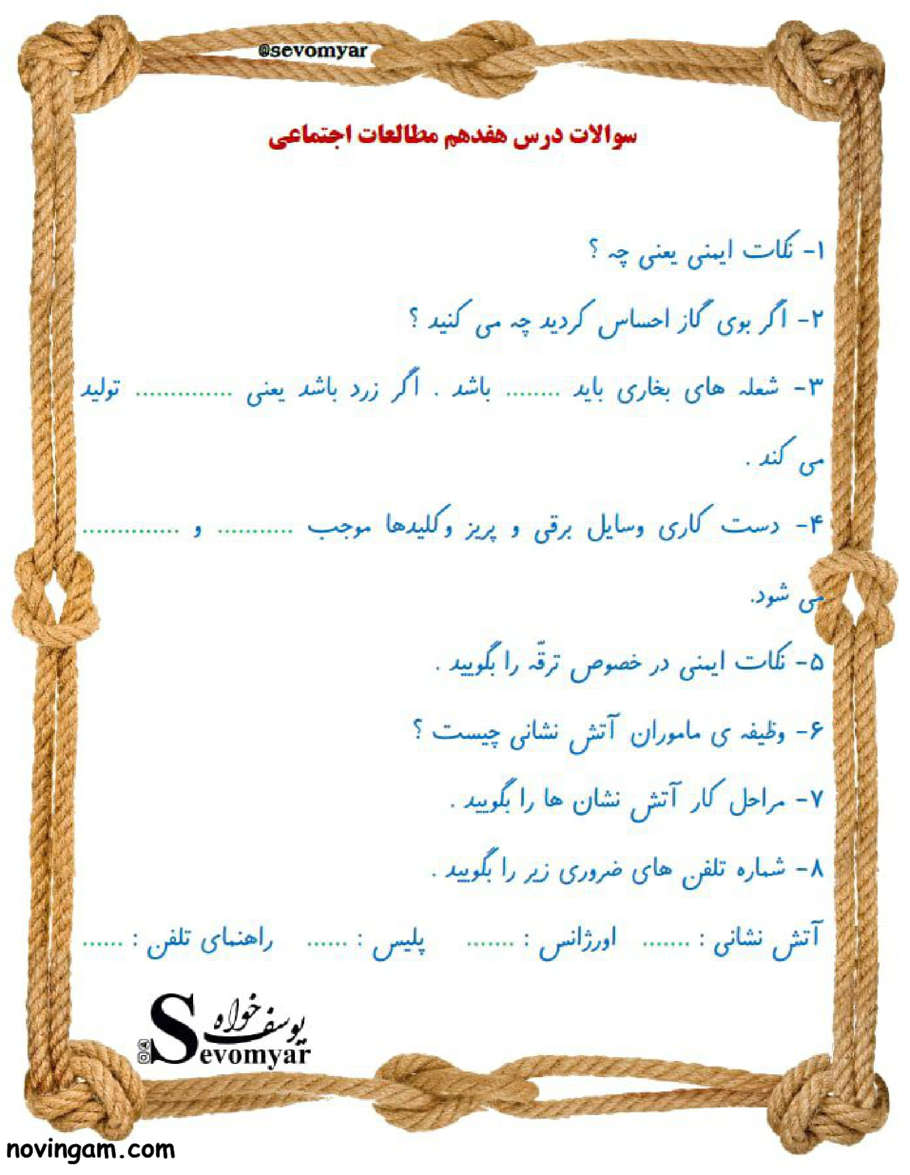 @sevomyar
سوالات درس هفدهم مطالعات اجتماعی
۱- نکات ایمنی یعنی چه ؟
۲- اگر بوی گاز احساس کردید چه می کنید ؟
۳- شعله های بخاری باید ........ باشد . اگر زرد باشد یعنی .............. تولید
می کند .
۴- دست کاری وسایل برقی و پریز وکلیدها موجب ........... و ..............
می شود.
۵- نکات ایمنی در خصوص ترقّه را بگویید .
۶- وظیفه ی ماموران آتش نشانی چیست ؟
۷- مراحل کار آتش نشان ها را بگویید .
۸- شماره تلفن های ضروری زیر را بگویید .
آتش نشانی : ....... اورژانس : ....... پلیس : ...... راهنمای تلفن : ......
یوسف خواه
Sevomyar
novingam.com